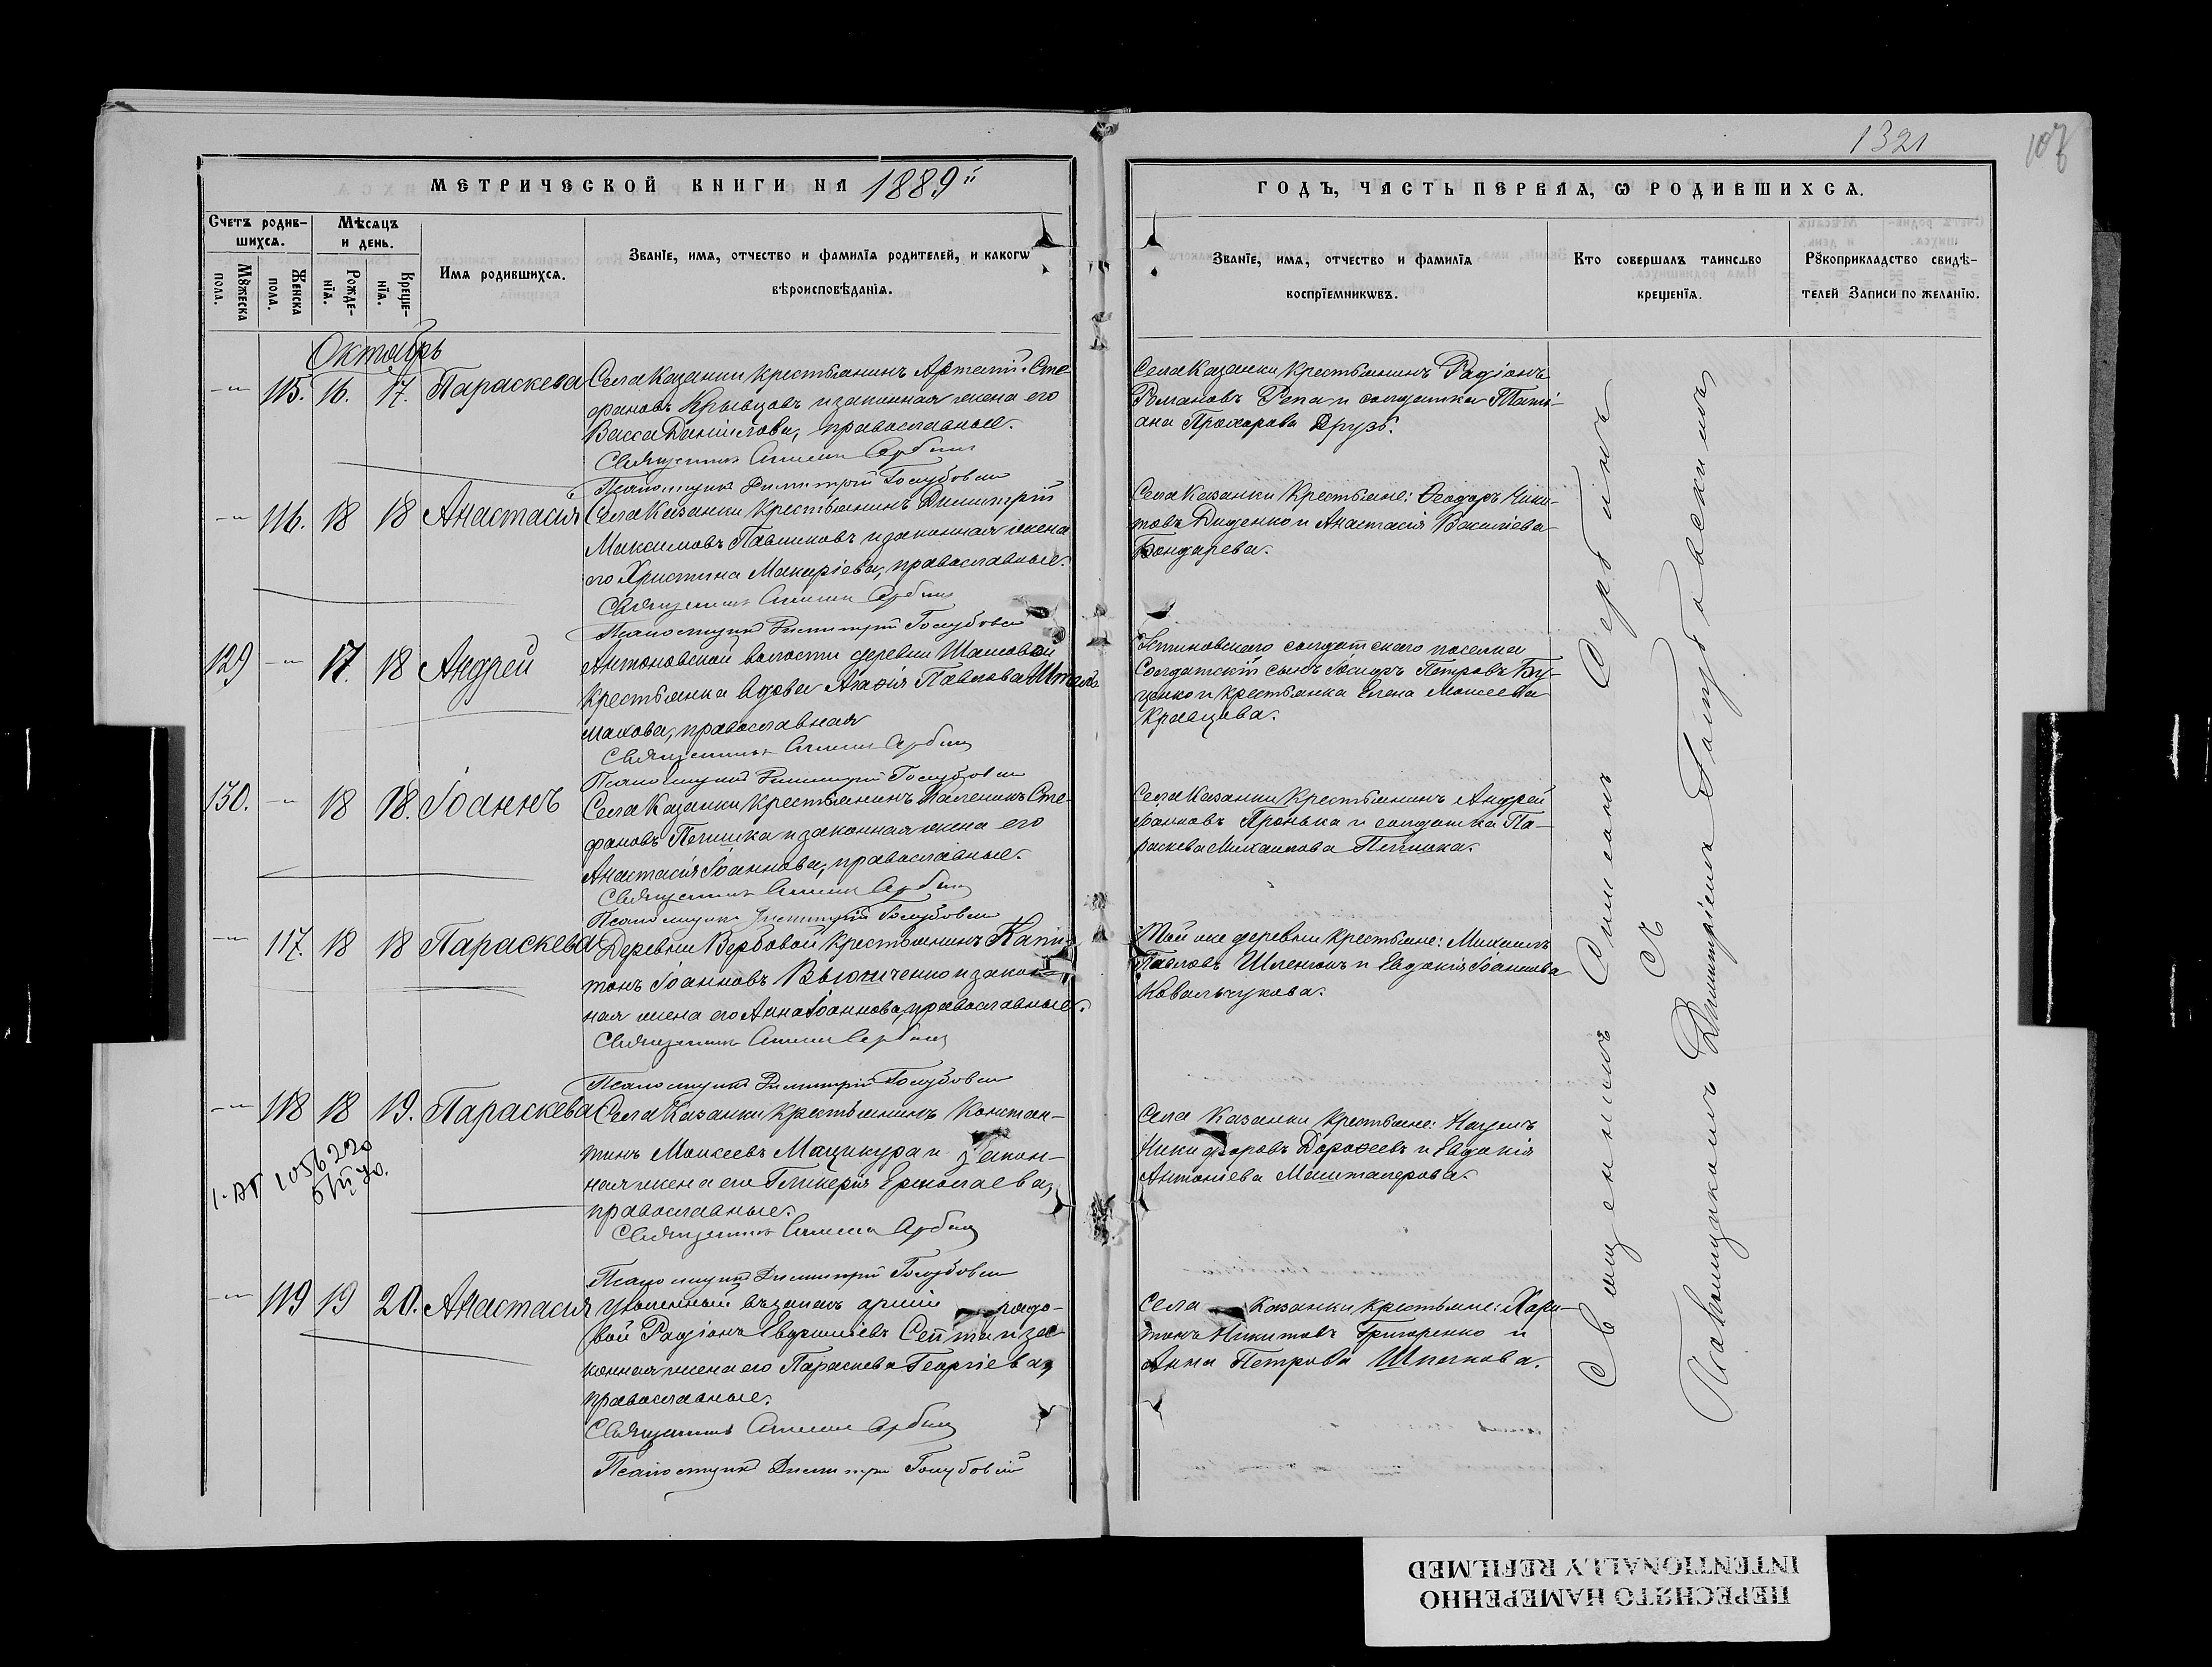 1321
107
МЕТРИЧЕСКОЙ КНИГИ НА 1889й
ГОДЪ, ЧАСТЬ ПЕРВАЯ, Ѡ РОДИВШИХСѦ.
Счетъ родив-
шихсѧ.
Мѣсѧцъ
и день.
Мꙋжеска
пола.
Женска
пола.
Рожде-
нїѧ.
Креще-
нїѧ.
Имѧ родившихсѧ.
Званїе, имѧ, отчество и фамилїѧ родителей, и какогѡ
вѣроисповѣданїѧ.
Званїе, имѧ, отчество и фамилїѧ
воспрїемникѡвъ.
Кто совершалъ таинство
крещенїѧ.
Рꙋкоприкладство свидѣ-
телей Записи по желанїю.
Октябрь
115. 16. 17. Параскева
Села Казанки крестьянинъ Артемій Сте-
фановъ Крывцовъ и законная жена его
Васса Даніилова, православные.
Священникъ Симеонъ Сербинъ
Псаломщикъ Димитрій Голубовскій
Села Казанки крестьянинъ Радіонъ
Романовъ Репа и солдатка Тати-
ана Прохорова Друзь.
116. 18 18 Анастасія
Села Казанки крестьянинъ Димитрій
Максимовъ Павликовъ и законная жена
его Христина Макаріева, православные.
Священникъ Симеонъ Сербинъ
Псаломщикъ Димитрій Голубовскій
Села Казанки крестьяне: Ѳеодоръ Ники-
товъ Диденко и Анастасія Василіева
Бондарева.
129 17. 18 Андрей
Антоновской волости деревни
крестьянка вдова Агаѳія Павлова
макова, православная
Священникъ Симеонъ Сербинъ
Псаломщикъ Димитрій Голубовскій
солдатскаго поселка
Солдатскій сынъ Исидоръ Петровъ Бу-
ценко и крестьянка Елена Моисеева
Кравцова.
130. 18 18. Іоаннъ
Села Казанки крестьянинъ Сте-
фановъ Пелишка и законная жена его
Анастасія Іоаннова, православные.
Священникъ Симеонъ Сербинъ
Псаломщикъ Димитрій Голубовскій
Села Казанки крестьянинъ Андрей
Іоанновъ Пронька и солдатка Па-
раскева Михаилова Пелишка.
117. 18 18 Параскева
Деревни Вербовой крестьянинъ Капи-
тонъ Іоанновъ и закон-
ная жена его Анна Іоаннова, православные.
Священникъ Симеонъ Сербинъ
Псаломщикъ Димитрій Голубовскій
Той же деревни крестьяне: Михаилъ
Павловъ и Евдокія Іоаннова
Ковальчукова.
118 18 19. Параскева
Села Казанки крестьянинъ Констан-
тинъ Моисеевъ Мацикура и закон-
ная жена его Гликерія Ермолаева,
православные.
Священникъ Симеонъ Сербинъ
Псаломщикъ Димитрій Голубовскій
Села Казанки крестьяне: Наумъ
Никифоровъ Дороѳеевъ и Евдокія
Антоніева Машталерова.
119 19 20. Анастасія
Уволенный въ запасъ арміи рядо-
вой Радіонъ и за-
конная жена его Параскева Георгіева,
православные.
Священникъ Симеонъ Сербинъ
Псаломщикъ Димитрій Голубовскій
Села Казанки крестьяне: Хари-
тонъ Никитовъ Григоренко и
Анна Петрова Шпакова.
Священникъ Симеонъ Сербинъ
съ
Псаломщикомъ Димитріемъ Голубовскимъ
ПЕРЕСНЯТО НАМЕРЕННО
INTENTIONALLY REFILMED